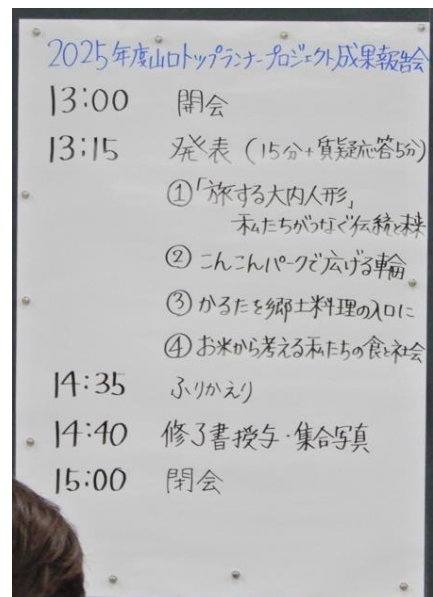 2025年度山口トップランナープロジェクト成果報告会
13:00 開会
13:15 発表（15分+質疑応答5分）
①「旅する大内人形」
私たちがつなぐ伝統と未来
② こんこんパークで広げる輪
③ かるたを郷土料理の入口に
④ お米から考える私たちの食と社会
14:35 ふりかえり
14:40 修了書授与・集合写真
15:00 閉会